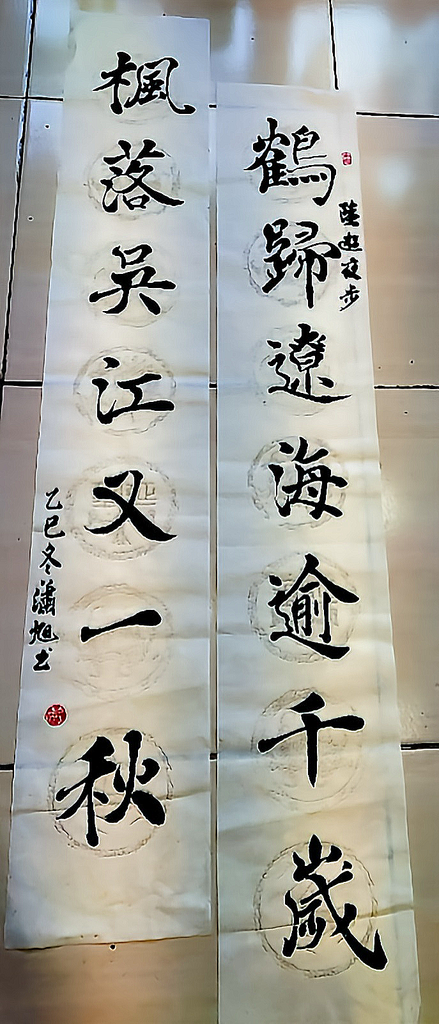 鶴歸遼海逾千歲
陸游夜步
楓落吳江又一秋
乙巳冬瀟旭书